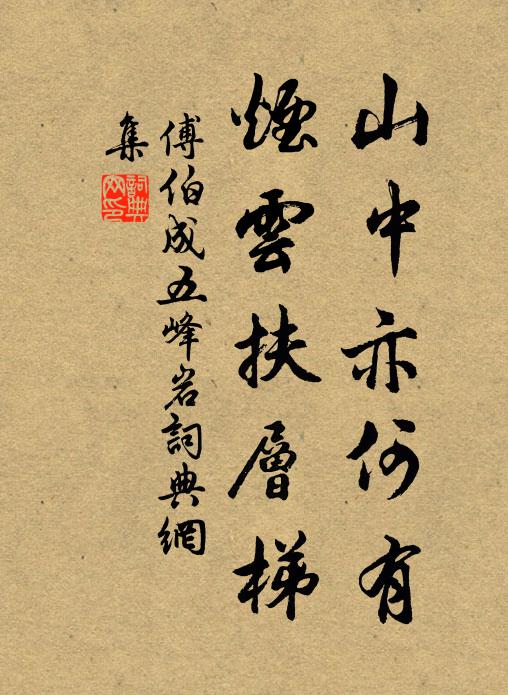 山中亦何有
煙雲扶層梯
傅伯成五峰岩詞典網
集
詞典網印